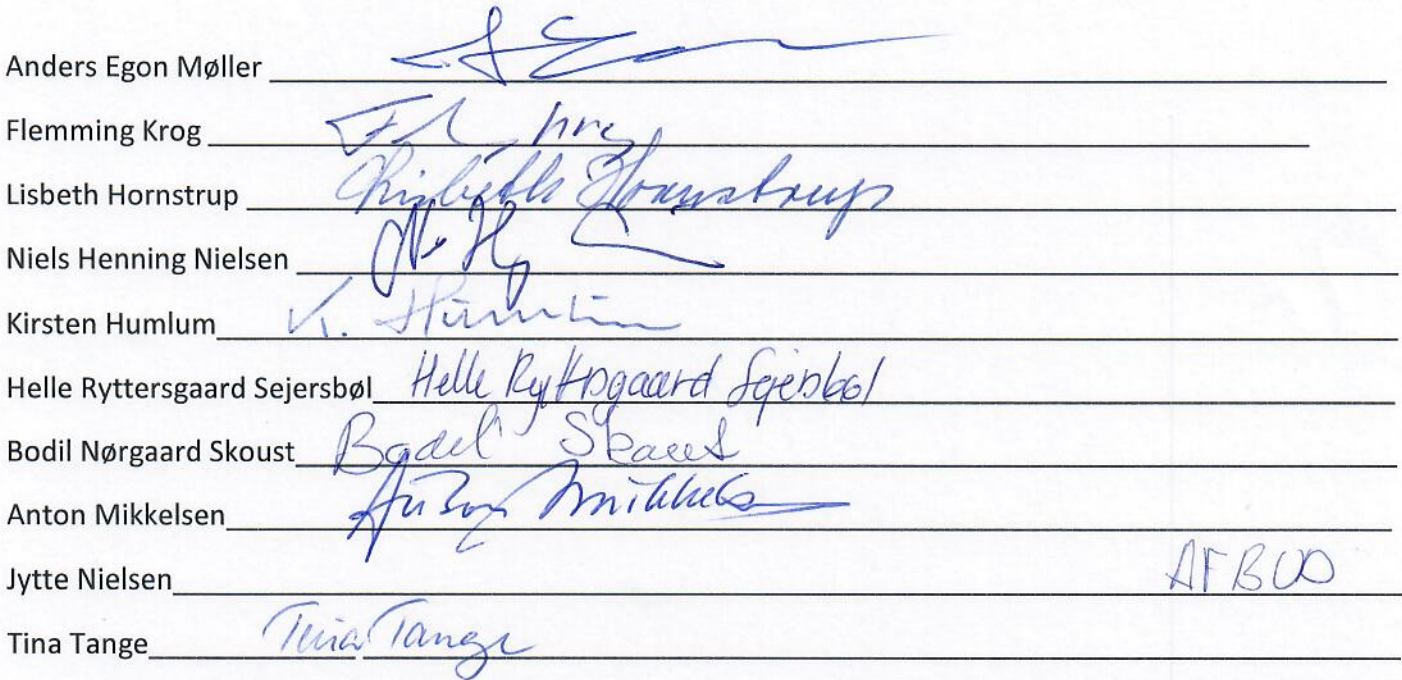 Anders Egon Møller
Flemming Krog
Lisbeth Hornstrup Lisbeth Hornstrup
Niels Henning Nielsen
Kirsten Humlum K. Humlum
Helle Ryttersgaard Sejersbøl Helle Ryttersgaard Sejersbøl
Bodil Nørgaard Skoust Bodil Skoust
Anton Mikkelsen Anton Mikkelsen
Jytte Nielsen AFBUD
Tina Tange Tina Tange